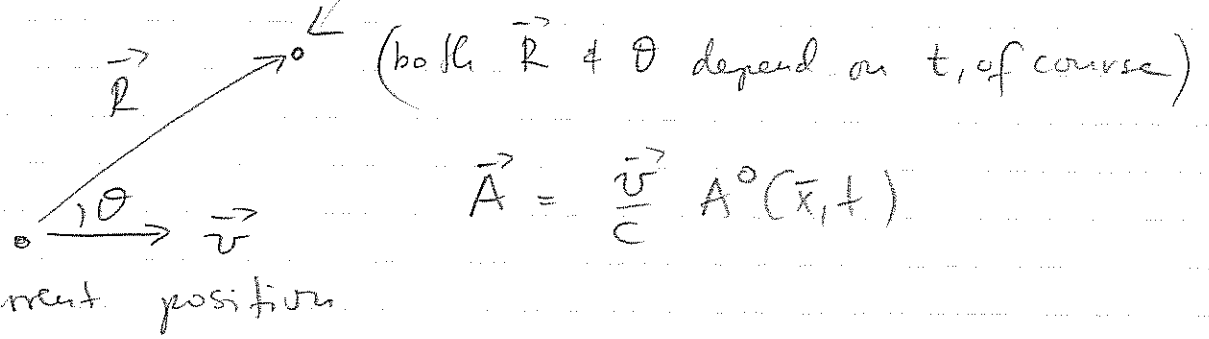 R⃗ (both R⃗ & θ depend on t, of course)
A⃗ = v⃗/c A⁰(x̄, t)
θ v⃗
rrent position